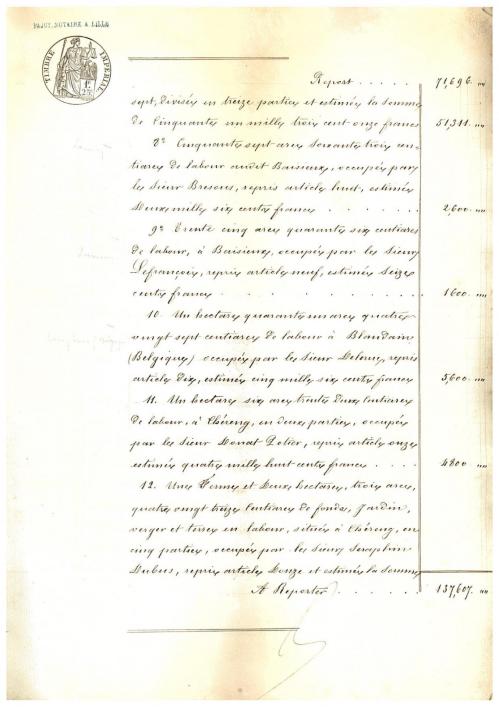 PAJOT, NOTAIRE A LILLE
TIMBRE IMPERIAL
Report . . . . . 71,696 "
sept, divisée en treize parties et estimée la somme
de Cinquante un mille trois cent onze francs 51,311 "
8° Cinquante sept ares soixante trois cen-
tiares de labour audit Baisieux, occupés par
le Sieur Bresous, repris article huit, estimés
Deux mille six cents francs . . . . . . 2,600 "
9° Trente cinq ares quarante six centiares
de labour, à Baisieux, occupés par le Sieur
Lefrançois, repris article neuf, estimés Seize
cents francs . . . . . . . . . . 1600 "
10. Un hectare quarante un ares quatre
vingt sept centiares de labour à Blandain
(Belgique) occupés par le Sieur repris
article dix, estimés cinq mille six cents francs 5,600 "
11. Un hectare six ares trente deux Centiares
de labour, à Chéreng, en deux parties, occupés
par le Sieur Donat Potier, repris article onze
estimés quatre mille huit cents francs . . . . 4800 "
12. Une Ferme et Deux hectares, trois ares,
quatre vingt treize Centiares de fonds, Jardin,
verger et terres en labour, située à Chéreng, en
cinq parties, occupés par le Sieur Séraphin
Dubus, repris article Douze et estimés la Somme
A Reporter . . . . . . 137,607 "